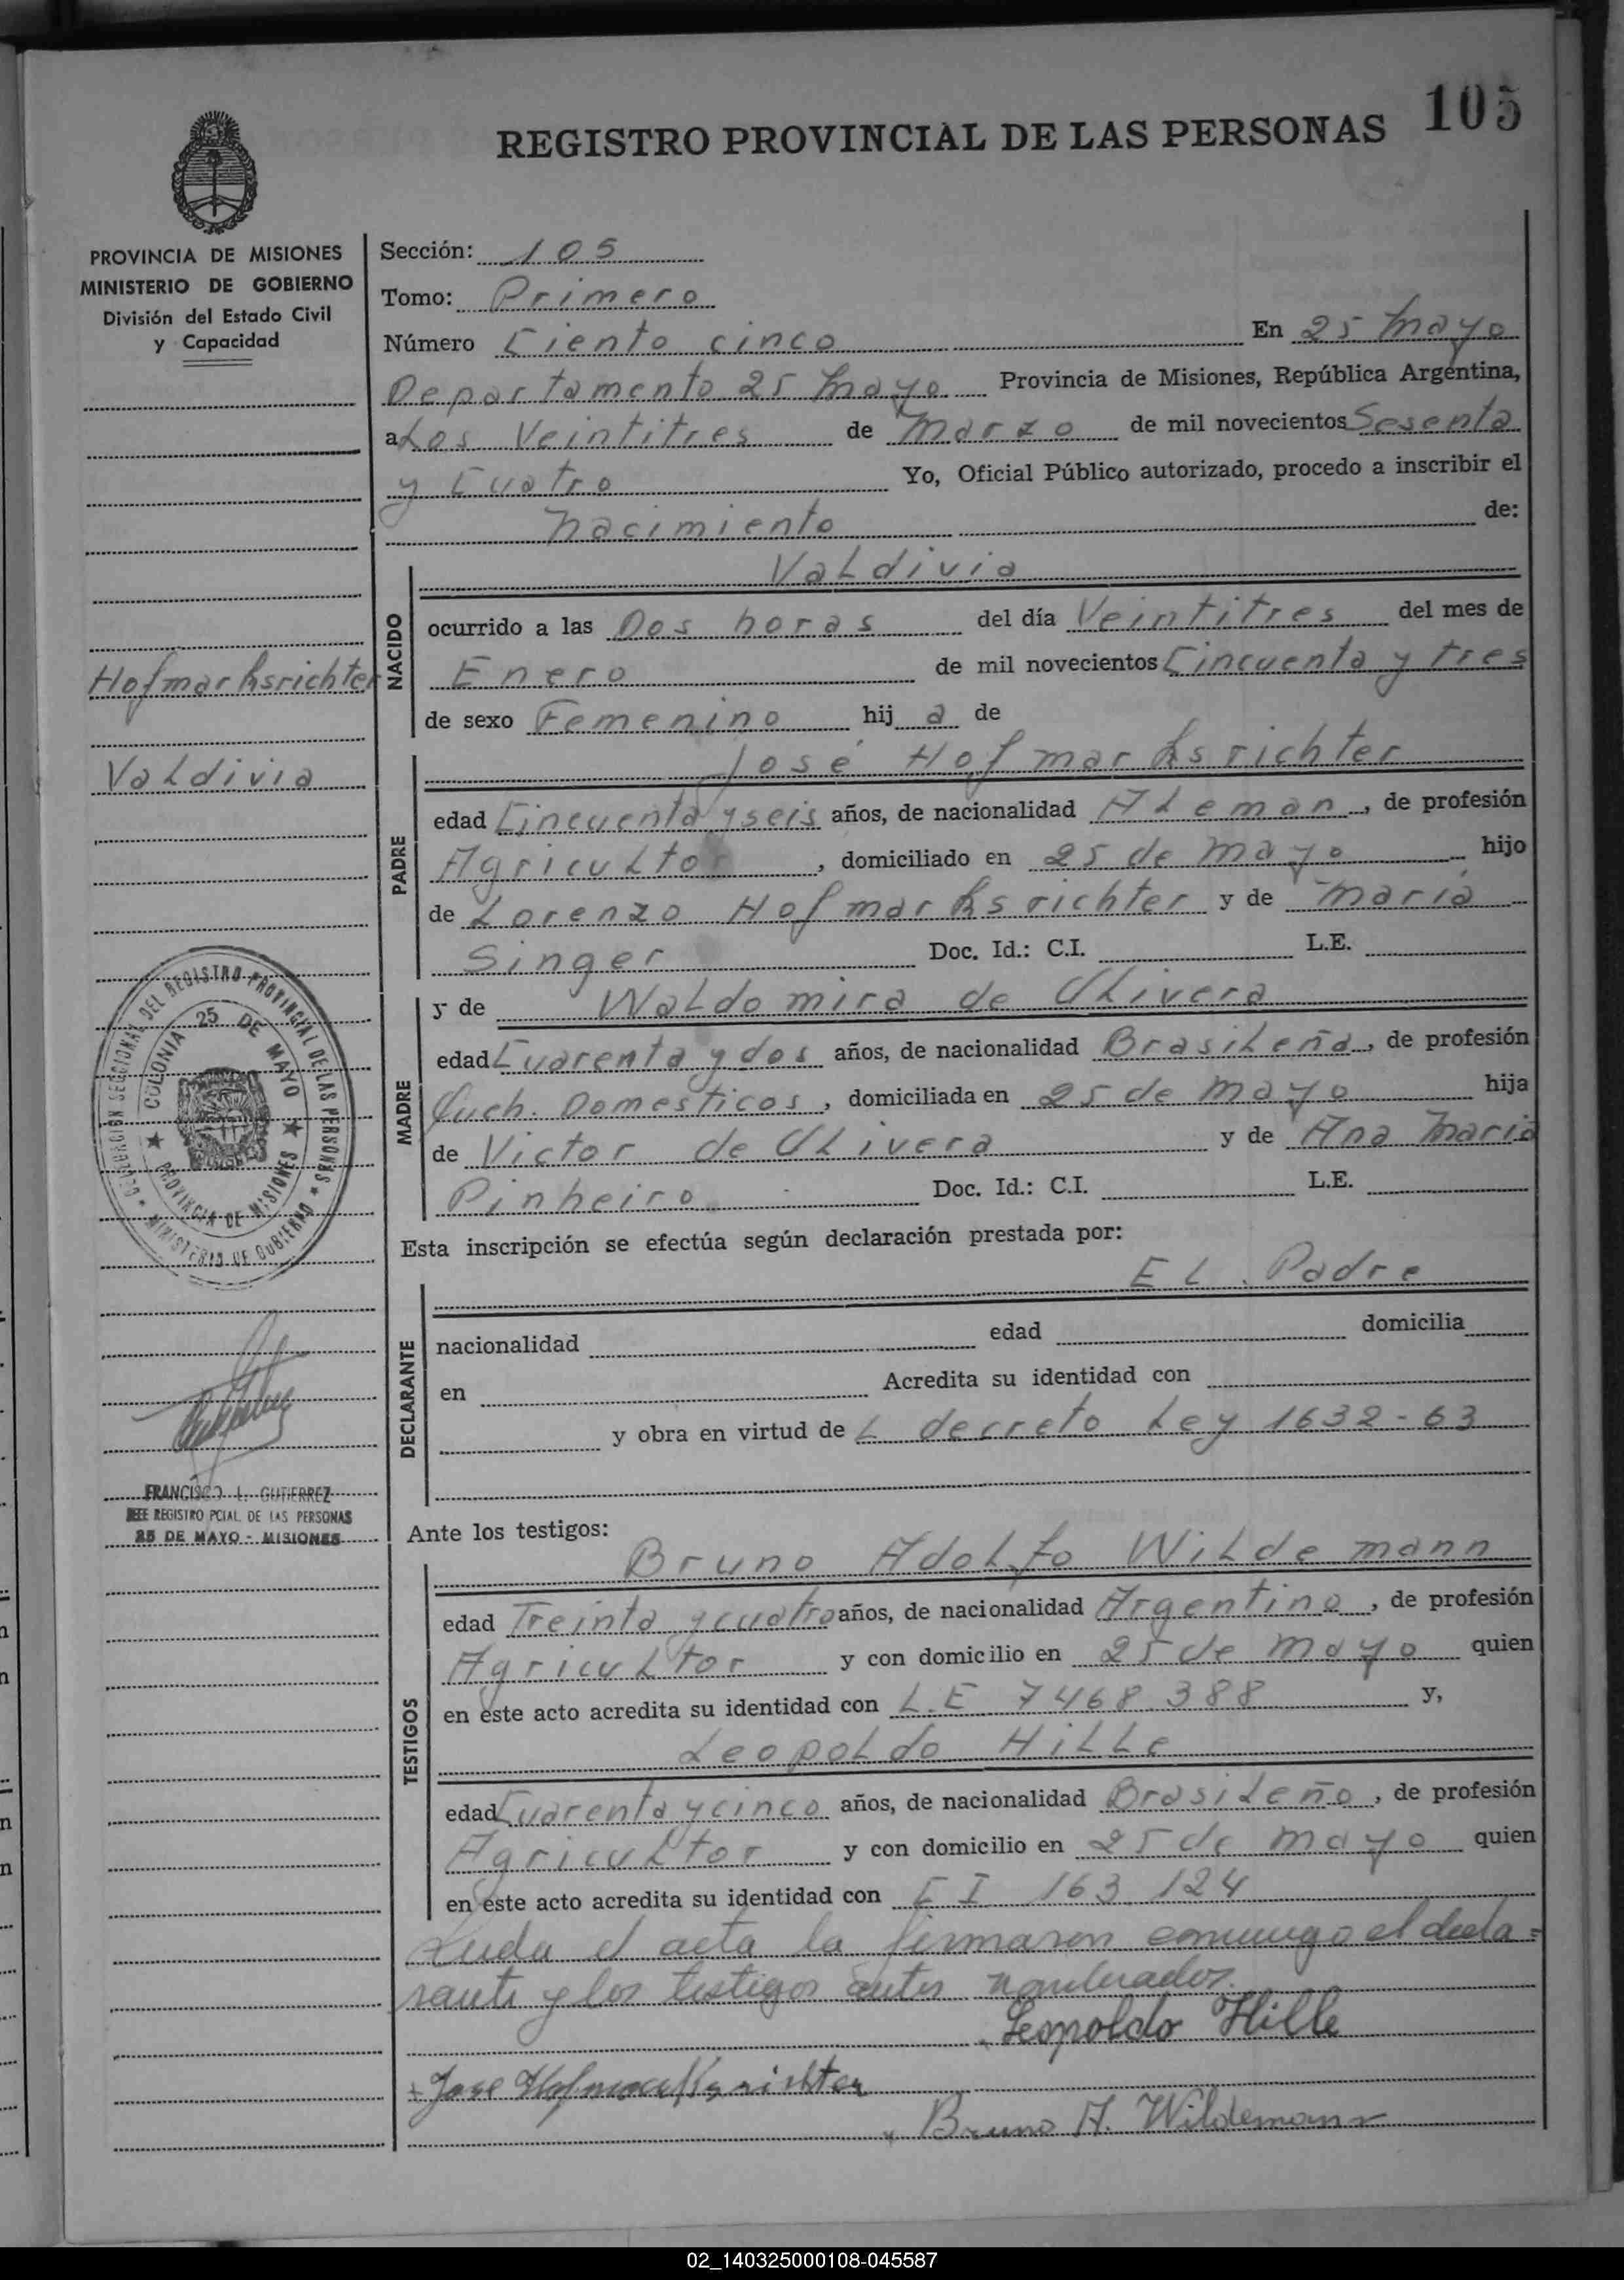 105
REGISTRO PROVINCIAL DE LAS PERSONAS
PROVINCIA DE MISIONES
MINISTERIO DE GOBIERNO
División del Estado Civil
y Capacidad
Hofmarksrichter
Valdivia
DELEGACIÓN SECCIONAL DEL REGISTRO PROVINCIAL DE LAS PERSONAS
★ MINISTERIO DE GOBIERNO ★
★ COLONIA 25 DE MAYO ★
PROVINCIA DE MISIONES
FRANCISCO L. GUTIERREZ
JEFE REGISTRO PCIAL. DE LAS PERSONAS
25 DE MAYO - MISIONES
Sección: 105
Tomo: Primero
Número Ciento cinco En 25 Mayo
Departamento 25 Mayo Provincia de Misiones, República Argentina,
a Los Veintitres de Marzo de mil novecientos Sesenta
y Cuatro Yo, Oficial Público autorizado, procedo a inscribir el
Nacimiento de:
NACIDO
Valdivia
ocurrido a las Dos horas del día Veintitres del mes de
Enero de mil novecientos Cincuenta y tres
de sexo Femenino hij a de
PADRE
José Hofmarksrichter
edad Cincuenta y seis años, de nacionalidad Aleman, de profesión
Agricultor, domiciliado en 25 de Mayo hijo
de Lorenzo Hofmarksrichter y de Maria
Singer Doc. Id.: C.I. L.E.
MADRE
y de Waldomira de Olivera
edad Cuarenta y dos años, de nacionalidad Brasileña, de profesión
Queh. Domesticos, domiciliada en 25 de Mayo hija
de Victor de Olivera y de Ana Maria
Pinheiro Doc. Id.: C.I. L.E.
Esta inscripción se efectúa según declaración prestada por:
DECLARANTE
El Padre
nacionalidad edad domicilia
en Acredita su identidad con
y obra en virtud de L decreto Ley 1632-63
Ante los testigos:
TESTIGOS
Bruno Adolfo Wildemann
edad Treinta y cuatro años, de nacionalidad Argentino, de profesión
Agricultor y con domicilio en 25 de Mayo quien
en este acto acredita su identidad con L.E 7468.388 y,
Leopoldo Hille
edad Cuarenta y cinco años, de nacionalidad Brasileño, de profesión
Agricultor y con domicilio en 25 de Mayo quien
en este acto acredita su identidad con C I 163.124
Leida el acta la firmaron conmigo el decla=
rante y los testigos antes nombrados.
Leopoldo Hille
Jose Hofmarksrichter
Bruno A. Wildemann
02_140325000108-045587